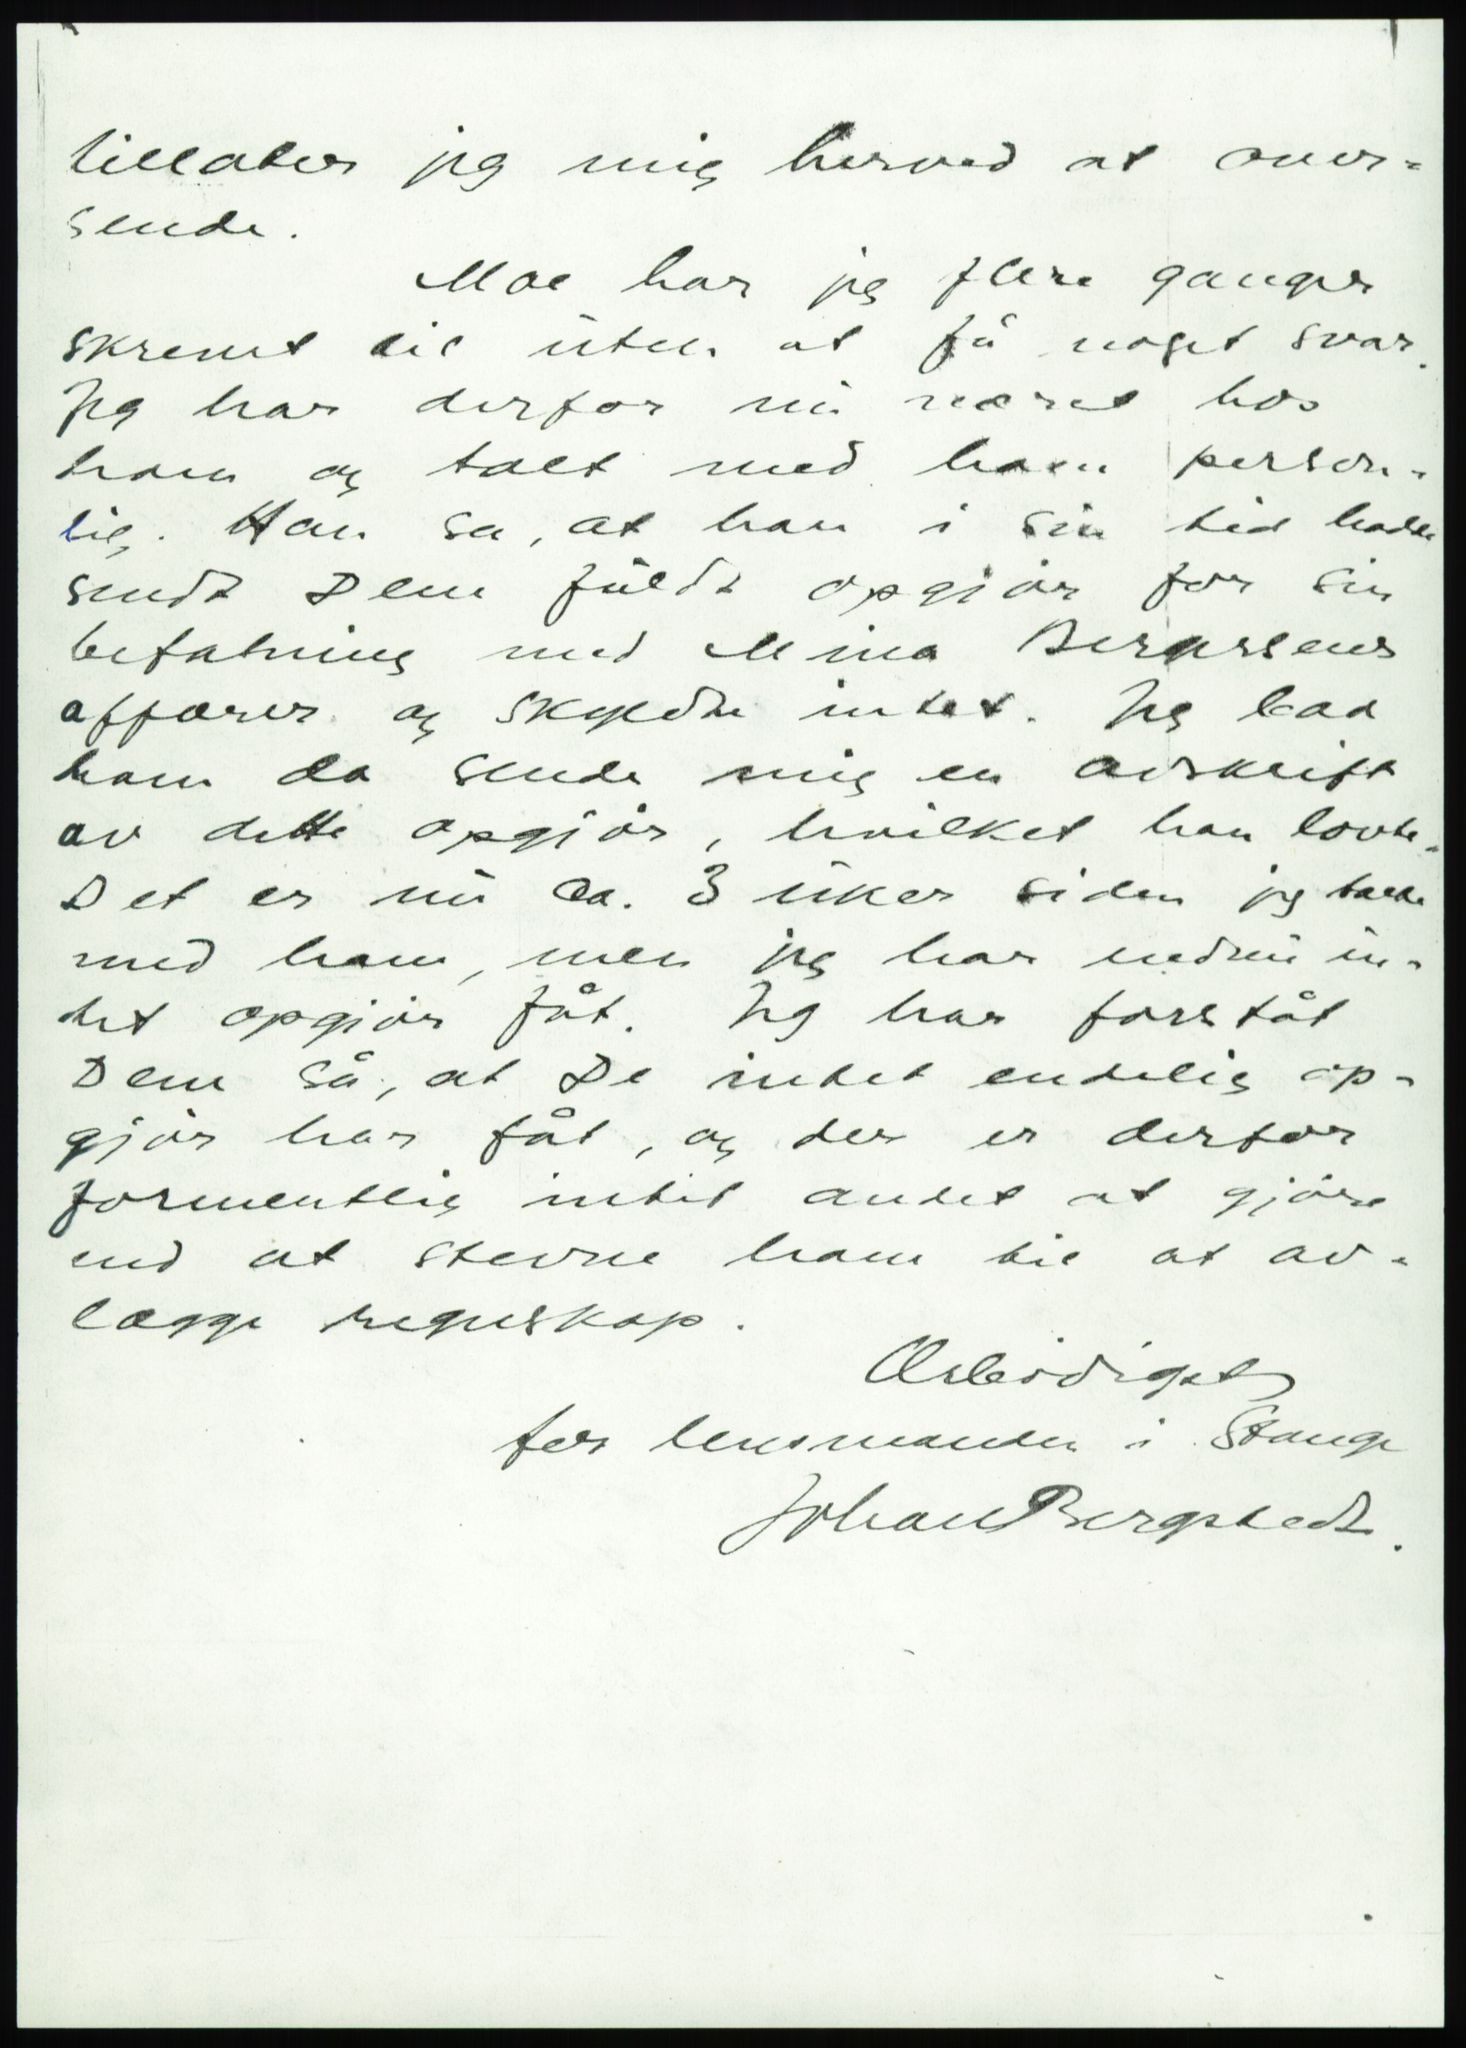 tillater jeg mig herved at over-
sende.
Moe har jeg flere ganger
skrevet til uten at få noget svar.
Jeg har derfor nu været hos
ham og talt med ham person-
lig. Han sa, at han i sin tid hadde
sendt Dem fuldt opgjør for sin
befatning med Mina Berg­ersens
affærer og skyldte intet. Jeg bad
ham da sende mig en avskrift
av dette opgjør, hvilket han lovte.
Det er nu ca. 3 uker siden jeg talte
med ham, men jeg har endnu in-
tet opgjør fåt. Jeg har forståt
Dem så, at De intet endelig op-
gjør har fåt, og der er derfor
formentlig intet andet at gjøre
end at stevne ham til at av-
lægge regnskap.
Ærbødigst
for lensmanden i Stange
Johan Bergstedt.